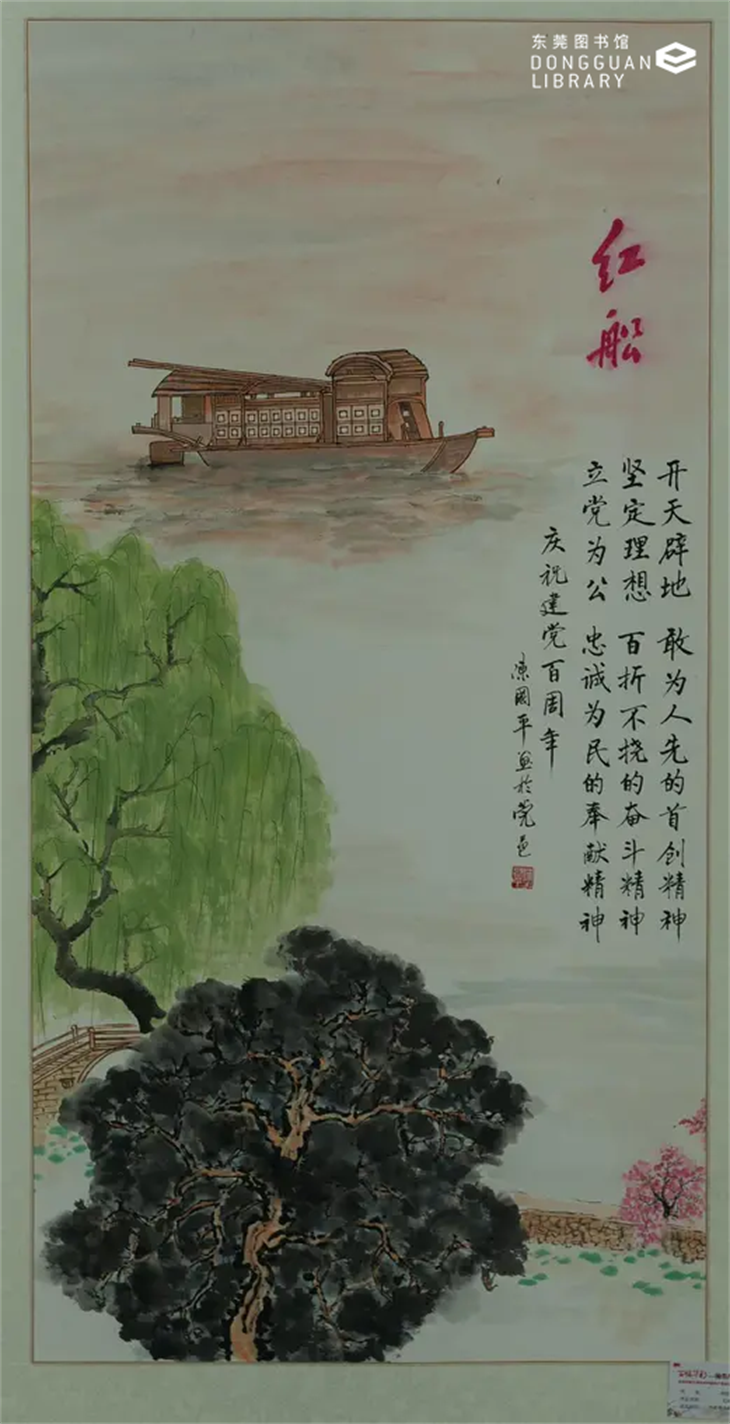 东莞图书馆
DONGGUAN
LIBRARY
红船
开天辟地 敢为人先的首创精神
坚定理想 百折不挠的奋斗精神
立党为公 忠诚为民的奉献精神
庆祝建党百周年
国平画于莞邑